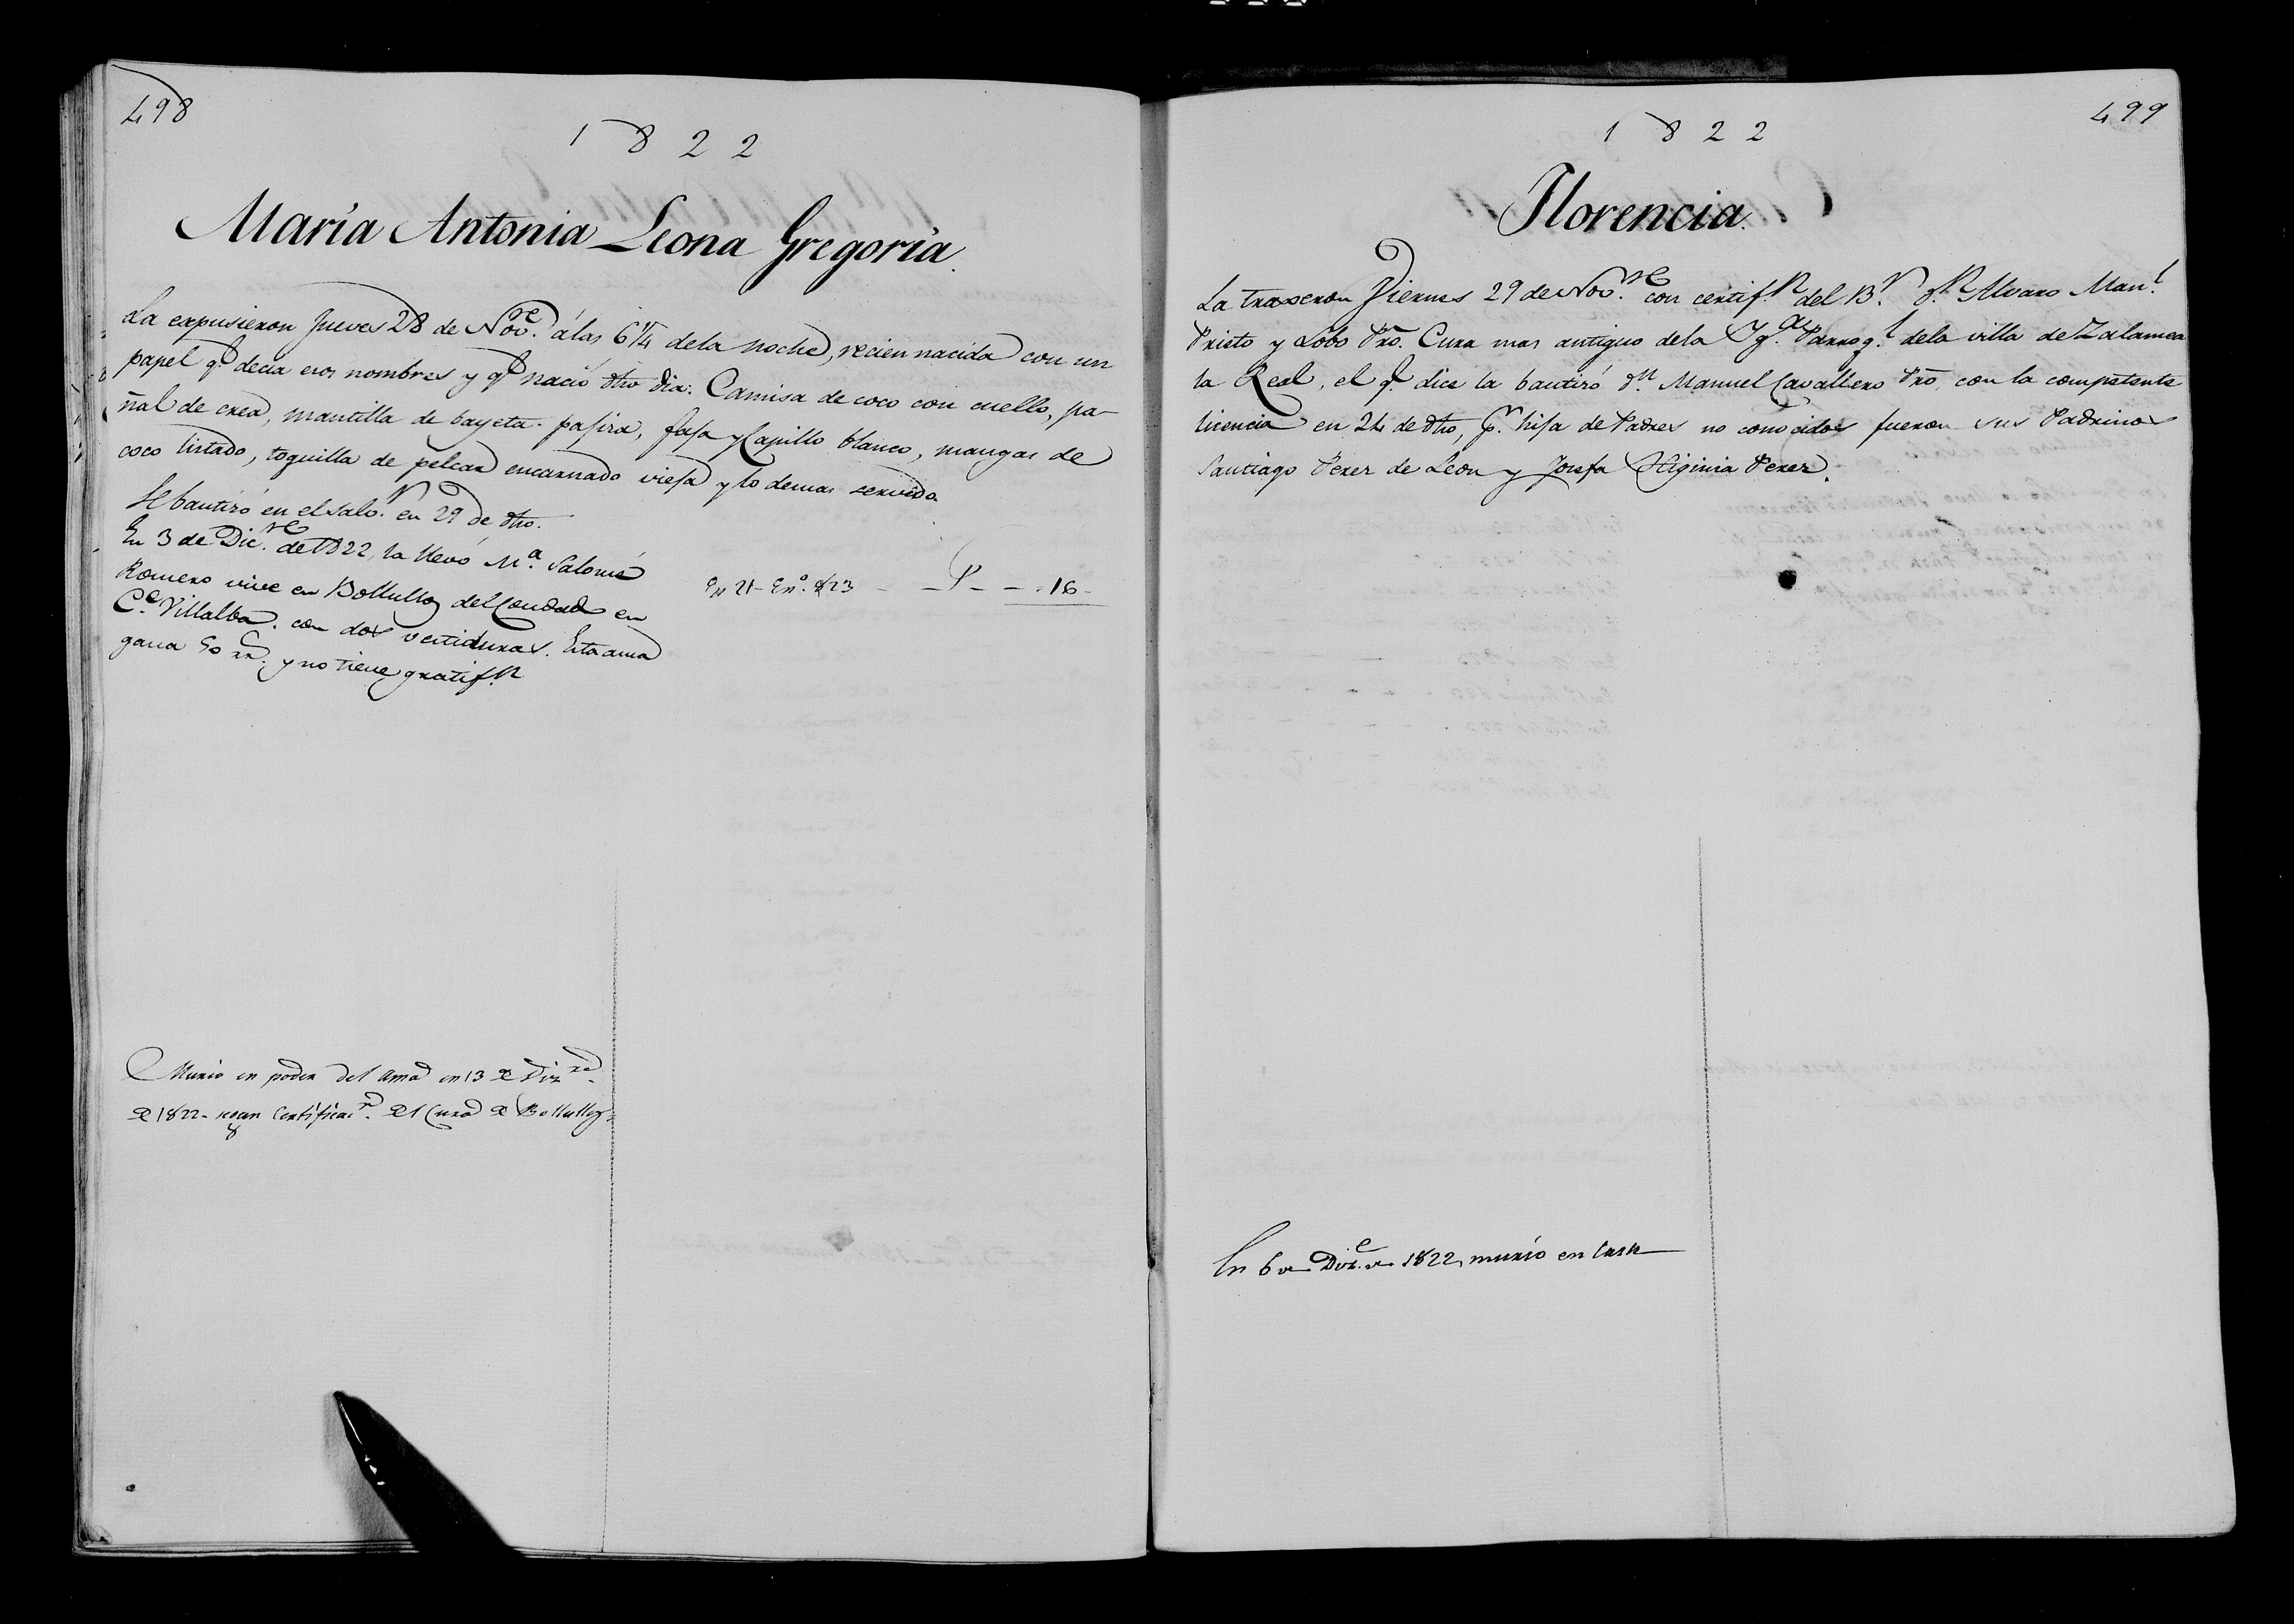 498
1822
María Antonia Leona Gregoria.
La expusieron Jueves 28 de Nov.e á las 6 1/4 dela noche, recien nacida con un
papel q.e decia esos nombres y q.e nació dho dia: Camisa de coco con cuello, pa-
ñal de crea, mantilla de bayeta pajiza, faja y Capillo blanco, mangas de
coco listado, toquilla de pelcar encarnado vieja y lo demas servido
Se bautizó en el Salv.r en 29 de dho.
En 3 de Dic.re de 1822, la llevó M.a Salomé
Romero vive en Bollullos del Condado en
C.e Villalba. con dos vestiduras. Esta ama
gana 50 rr. y no tiene gratif.n
En 21- En.o 823 - - P - - 16-
Murio en poder del Ama en 13 de Diz.re
de 1822- segun Certificas.n del Cura de Bollullos
499
1822
Florencia.
La traxeron Viernes 29 de Nov.re con certif.n del B.r d.n Alvaro Man.l
Prieto y Lobo Pro. Cura mas antiguo dela Yg.a Parroq.l dela villa de Zalamea
la Real, el q.e dice la bautizó d.n Manuel Cavallero Pro, con la competente
licencia en 24 de dho, p.r hija de Padres no conocidos fueron sus Padrinos
Santiago Perez de Leon y Josefa Higinia Perez.
En 6 de Diz.e de 1822, murió en Casa